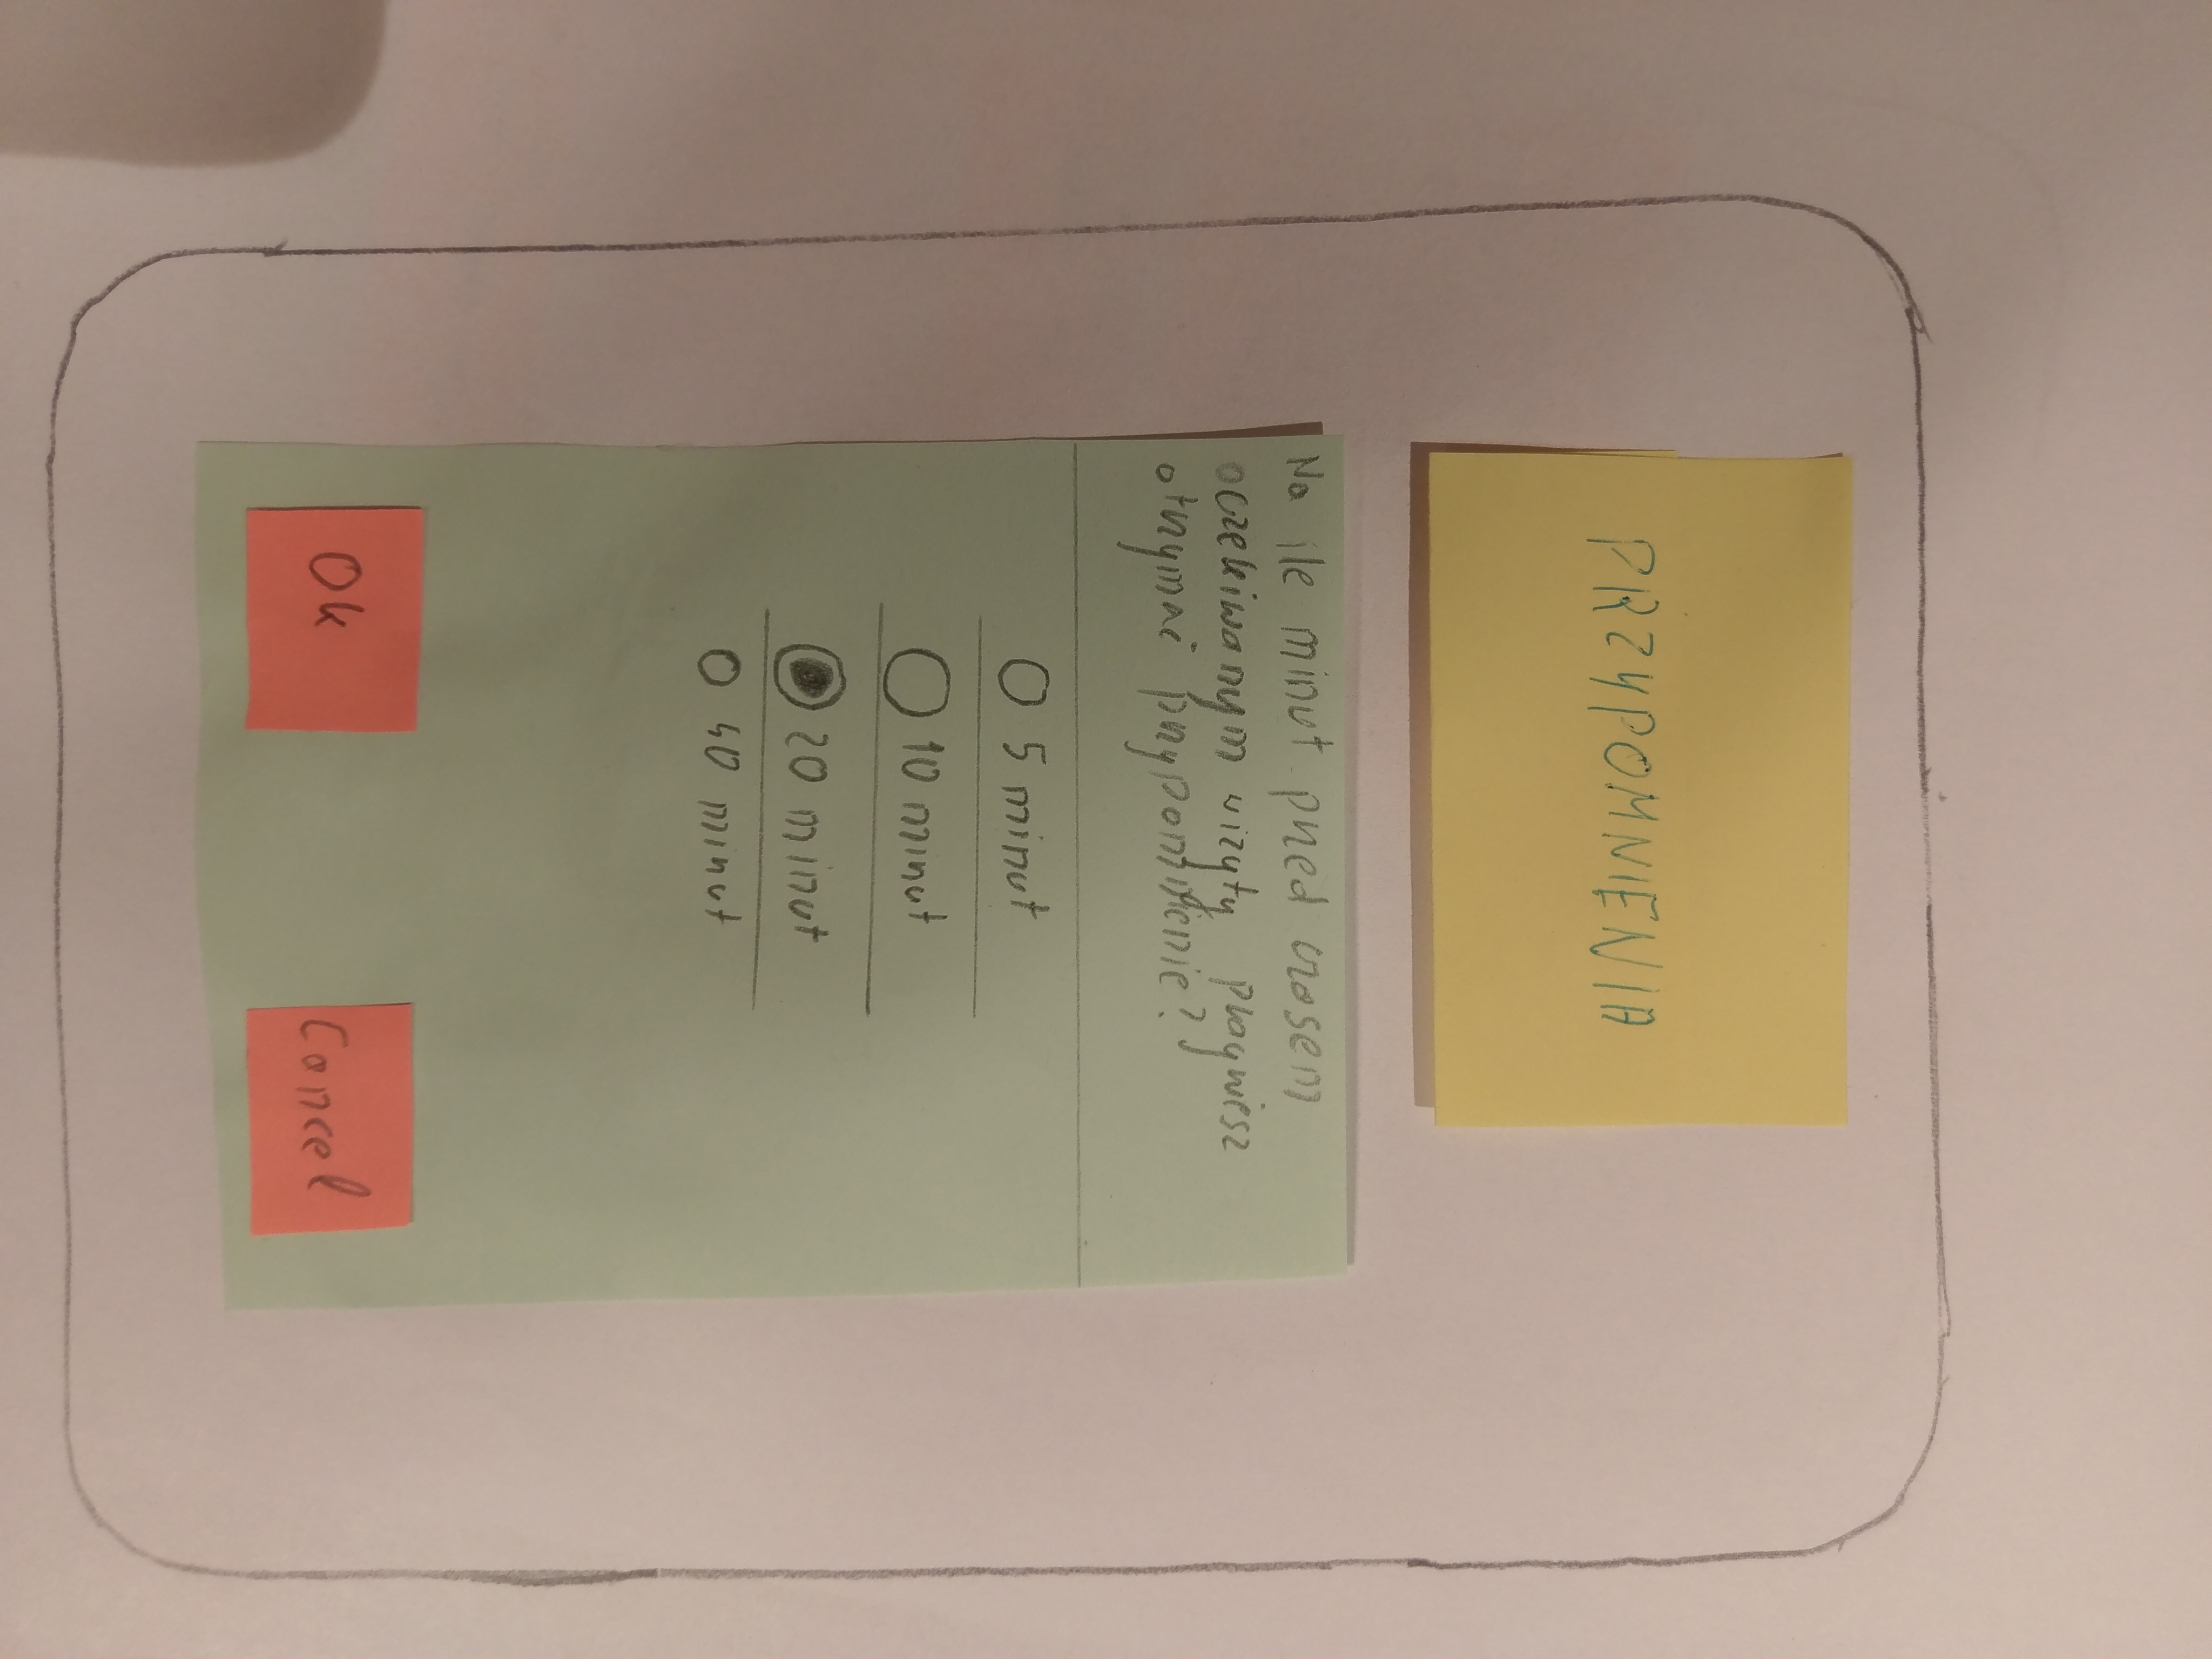 PRZYPOMNIENIA
Na ile minut przed czasem
oczekiwanym wizyty pragniesz
otrzymać przypomnienie?
5 minut
10 minut
20 minut
40 minut
Ok
Cancel